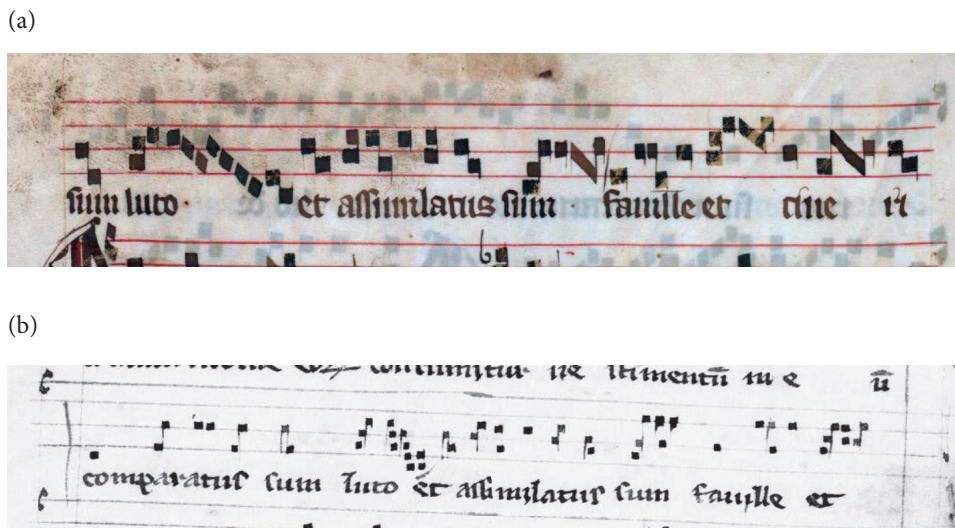 (a)
sum luto et assimilatus sum fauille et cine ri
(b)
ne
comparatus sum luto et assimilatus sum fauille et